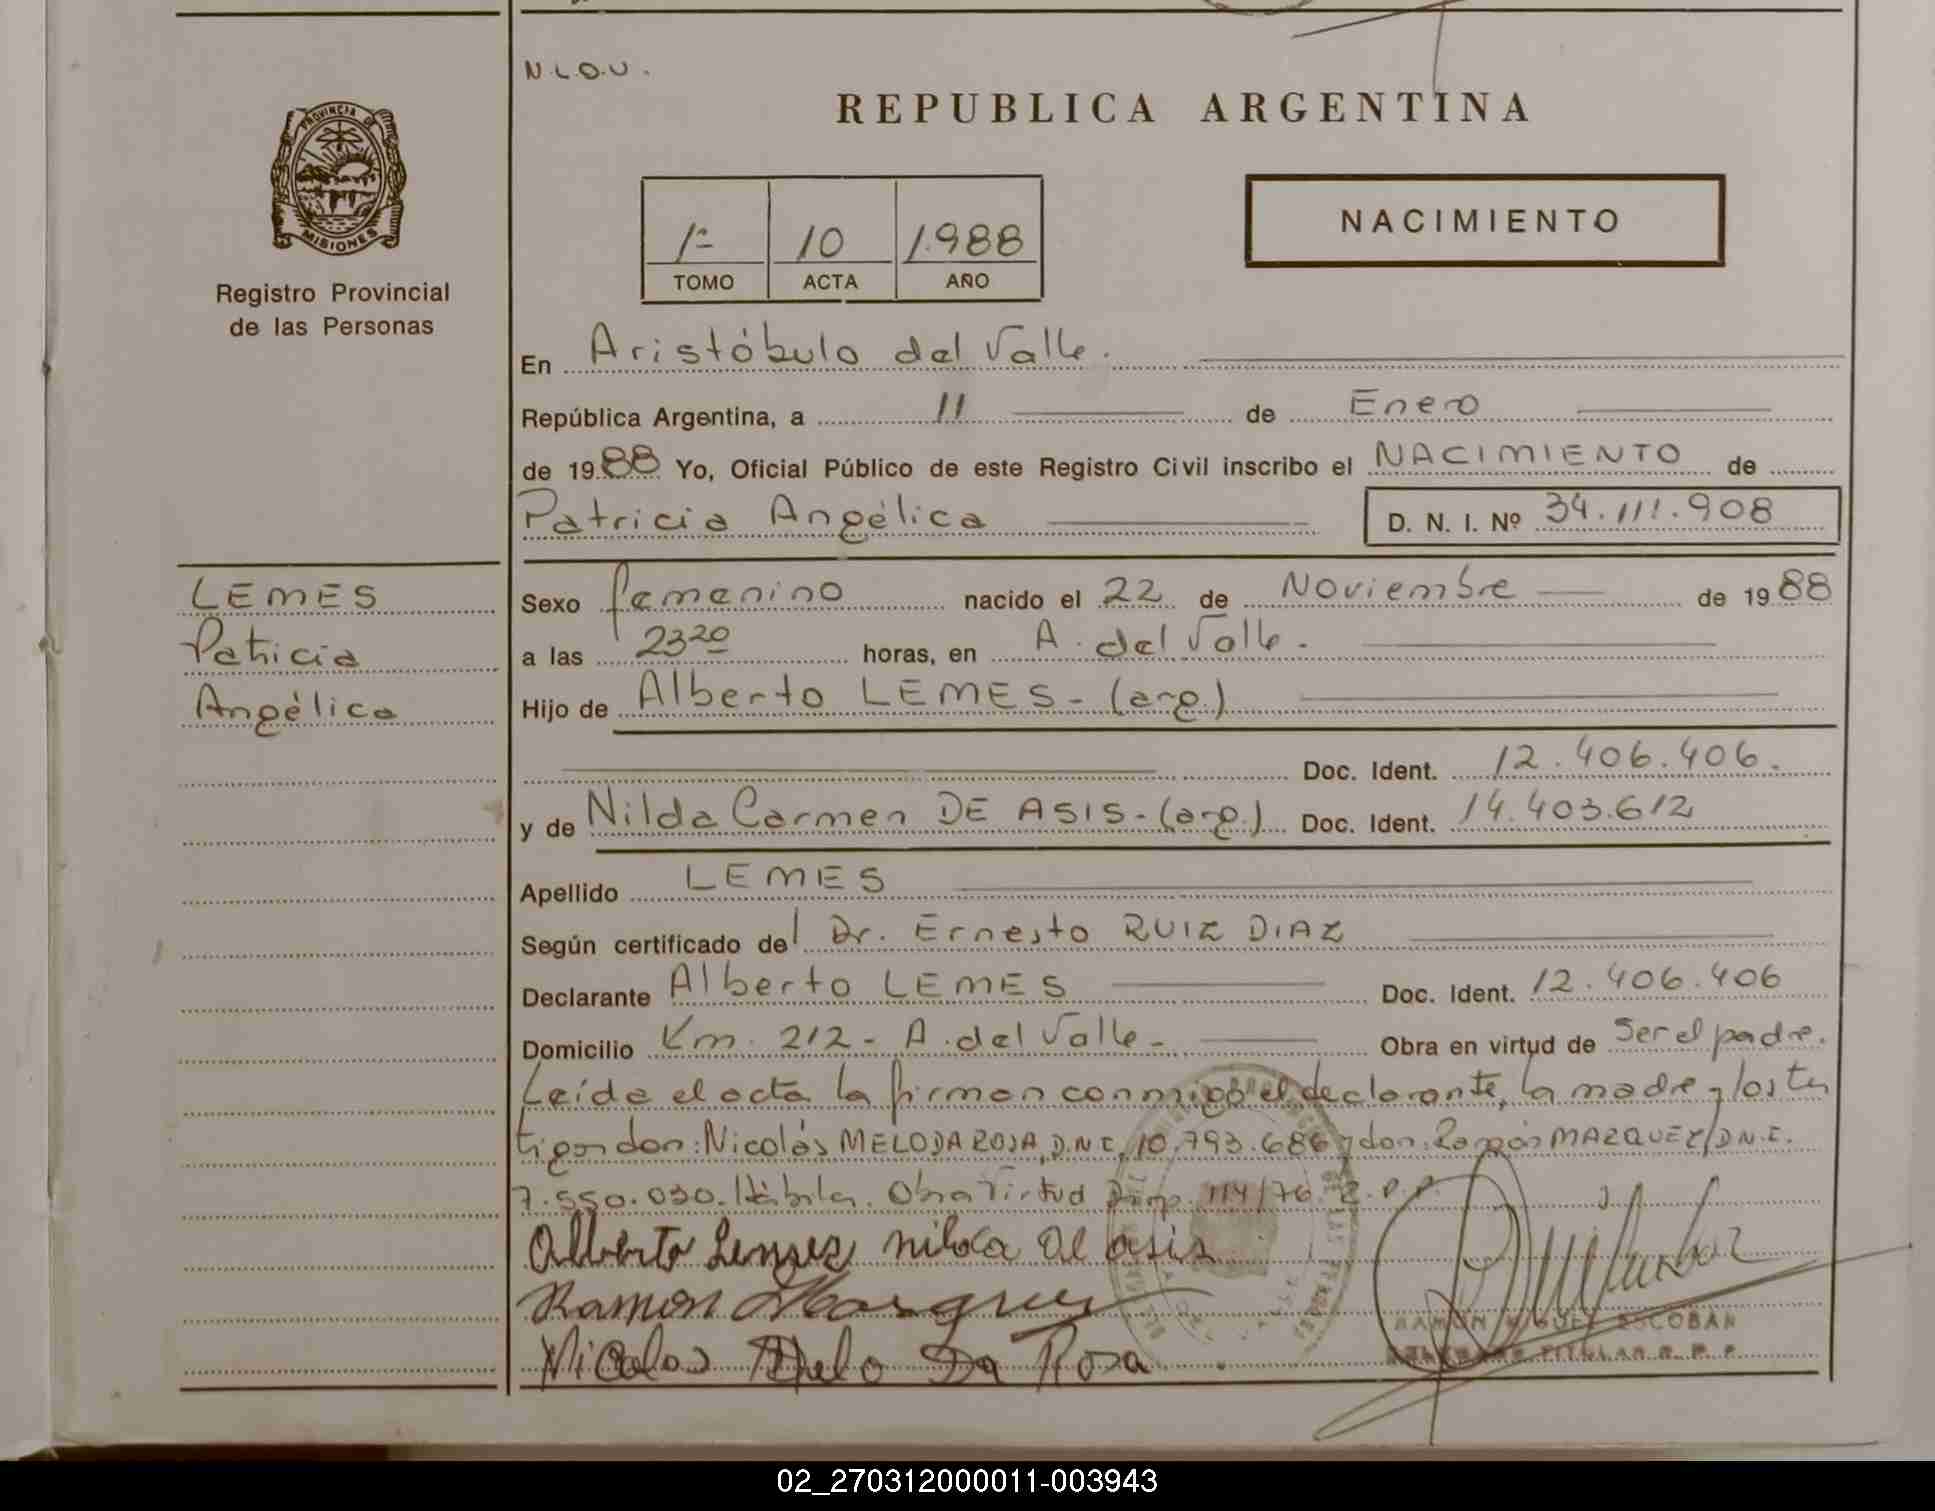 N.L.O.U.
REPUBLICA ARGENTINA
PROVINCIA DE
MISIONES
Registro Provincial
de las Personas
1º 10 1.988
TOMO ACTA AÑO
NACIMIENTO
En Aristóbulo del Valle.
República Argentina, a 11 de Enero
de 1988 Yo, Oficial Público de este Registro Civil inscribo el NACIMIENTO de
Patricia Angélica D. N. I. Nº 34.111.908
LEMES
Patricia
Angélica
Sexo femenino nacido el 22 de Noviembre de 1988
a las 23 20 horas, en A. del Valle.
Hijo de Alberto LEMES - (arg.)
Doc. Ident. 12.406.406.
y de Nilda Carmen DE ASIS - (arg.) Doc. Ident. 14.403.612
Apellido LEMES
Según certificado del Dr. Ernesto RUIZ DIAZ
Declarante Alberto LEMES Doc. Ident. 12.406.406
Domicilio Km. 212 - A. del Valle - Obra en virtud de Ser el padre.
Leída el acta la firman conmigo el declarante, la madre y los tes
tigos don: Nicolás MELO DA ROSA, D.N.I. 10.793.686 y don: Ramón MARQUEZ, D.N.I.
7.550.030. Hábiles. Obra Virtud Disp. 114/76 R.P.P.
Alberto Lemes nilda de asis
Ramon Marquez
Nicolas Melo Da Rosa
RAMON MIGUEL ESCOBAR
TITULAR R.P.P.
02_270312000011-003943